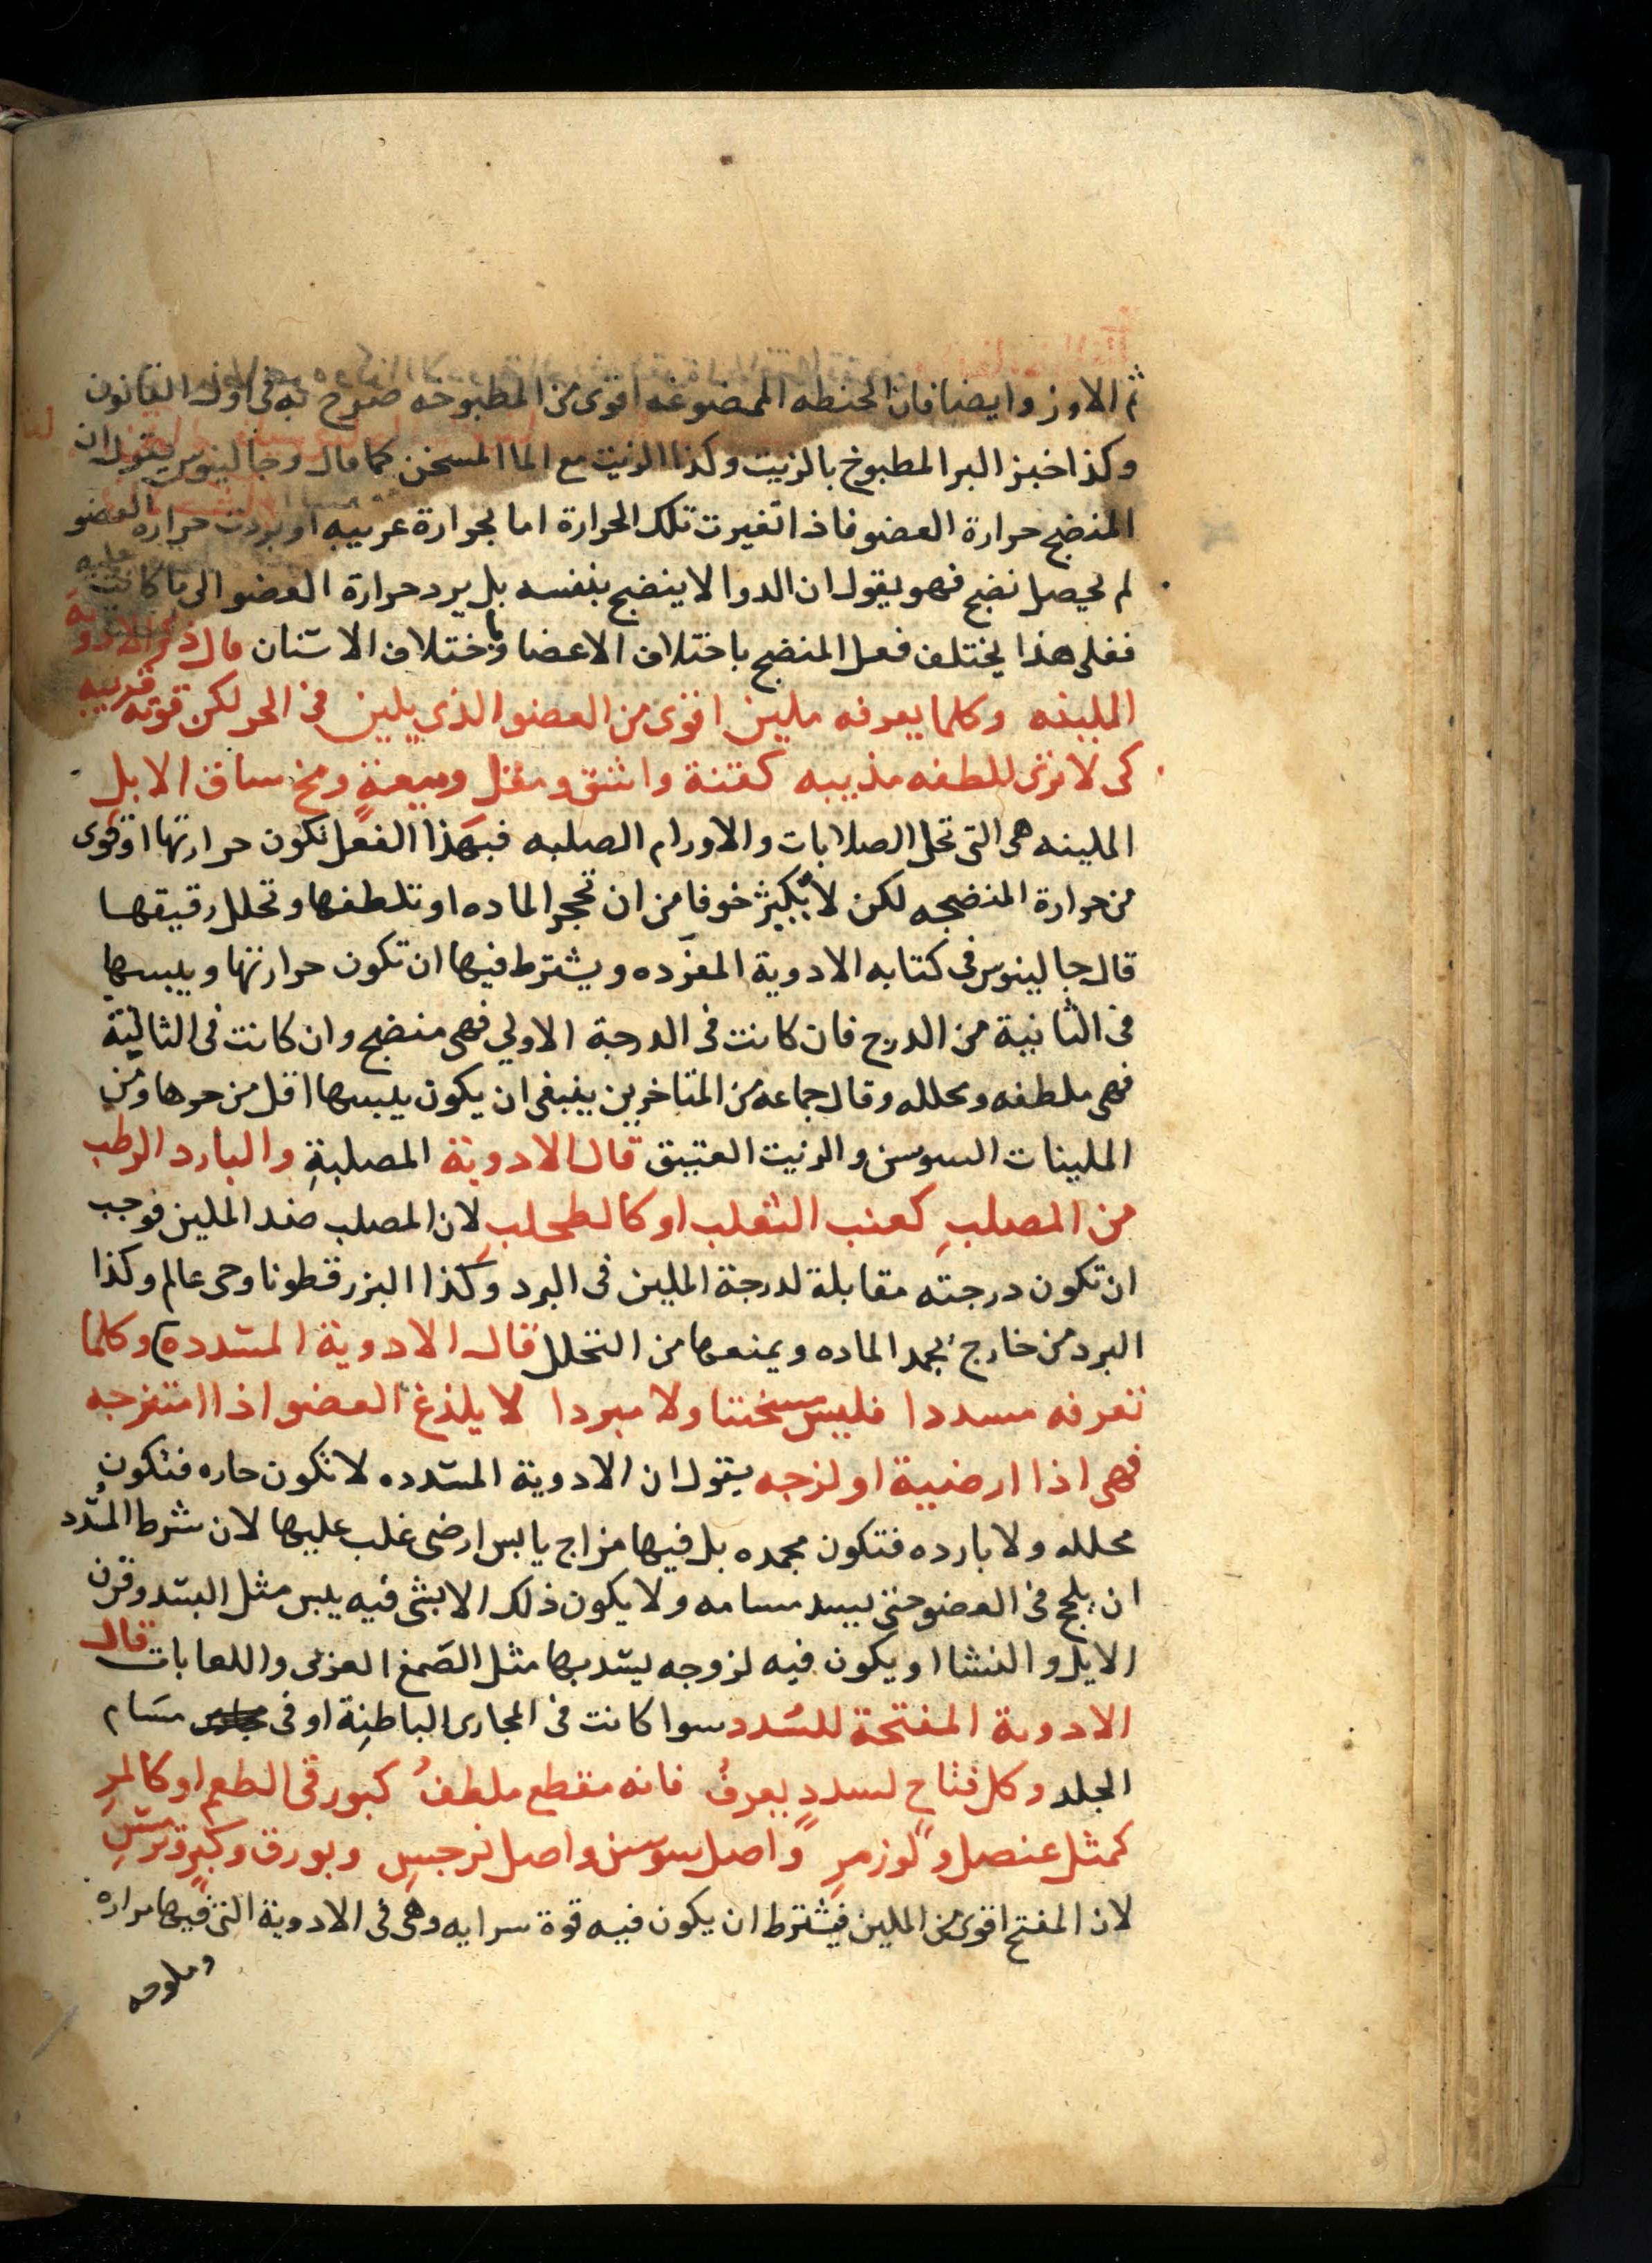 ثم الاوز وايضا فان الحنطه الممضوغه اقوى من المطبوخه صرح به فى اول القانون
وكذا خبز البر المطبوخ بالزيت وكذا الزيت مع الما المسخن كما قال وجالينوس يقول ان
المنضج حرارة العضو فاذا تغيرت تلك الحرارة اما بحرارة غريبه او بردت حرارة العضو
لم يحصل نضج فهو يقول ان الدوا لا ينضج بنفسه بل يرد حرارة العضو الى ما كانت عليه
فعلى هذا يختلف فعل المنضج باختلاف الاعضا وباختلاف الاسنان قال ذكر الادوية
الملينه وكلما يعرفه ملين اقوى من العضو الذى يلين فى الحر لكن قوته قريبه
كى لا ترى للطفه مذيبه كقنة واشق ومقل وميعة ومخ ساق الابل
الملينه هى التى تحل الصلابات والاورام الصلبه فبهذا الفعل تكون حرارتها اقوى
من حرارة المنضجه لكن لا بكثير خوفا من ان تحجر الماده او تلطفها وتحلل رقيقها
قال جالينوس فى كتابه الادوية المفرده ويشترط فيها ان تكون حرارتها ويبسها
فى الثانية من الدرج فان كانت فى الدرجة الاولى فهى منضج وان كانت فى الثالثة
فهى ملطفه ومحلله وقال جماعة من المتاخرين ينبغى ان يكون يبسها اقل من حرها ومن
الملينات السوسن والزيت العتيق قال الادوية المصلبةِ والبارد الرطب
من المصلبِ كعنب الثعلب او كالطحلبِ لان المصلب ضد الملين فوجب
ان تكون درجته مقابلة لدرجة الملين فى البرد وكذا البزر قطونا وحى عالم وكذا
البرد من خارج يجمد الماده ويمنعها من التحلل قال الادوية المسدده وكلما
تعرفه مسددا فليس مسخنا ولا مبردا لا يلذغ العضو اذا امتزجه
فهى اذا ارضية او لزجه يقول ان الادوية المسدده لا تكون حاره فتكون
محلله ولا بارده فتكون مجمده بل فيها مزاج يابس ارضى غلب عليها لان شرط المسدد
ان يلج فى العضو حتى يسد مسامه ولا يكون ذلك الا بشى فيه يبس مثل البسد وقرن
الايل والنشا او يكون فيه لزوجه يسد بها مثل الصمغ العربى واللعابات قال
الادوية المفتحة للسدد سوا كانت فى المجارى الباطنِة او فى مسام
الجلد وكل فتاح لسددٍ يعرفُ فانه مقطع ملطفُ كبورقى الطعم او كالمرِ
كمثل عنصل ولوز مرٍ واصل سوسن واصل نرجسِ وبورق وكبرٍ وترمسِ
لان المفتح اقوى من الملين فيشترط ان يكون فيه قوة سرايه وهى فى الادوية التى فيها مراره
وملوحه